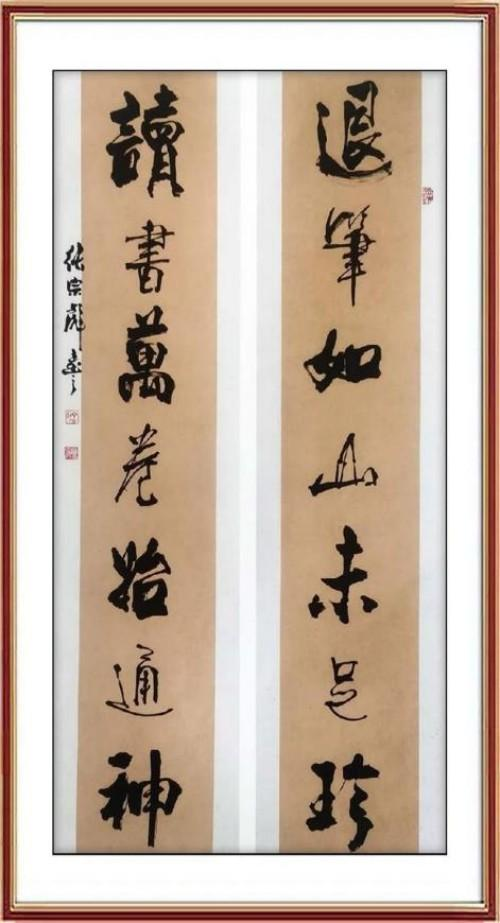 退筆如山未足珍
讀書萬卷始通神
張宗彪書